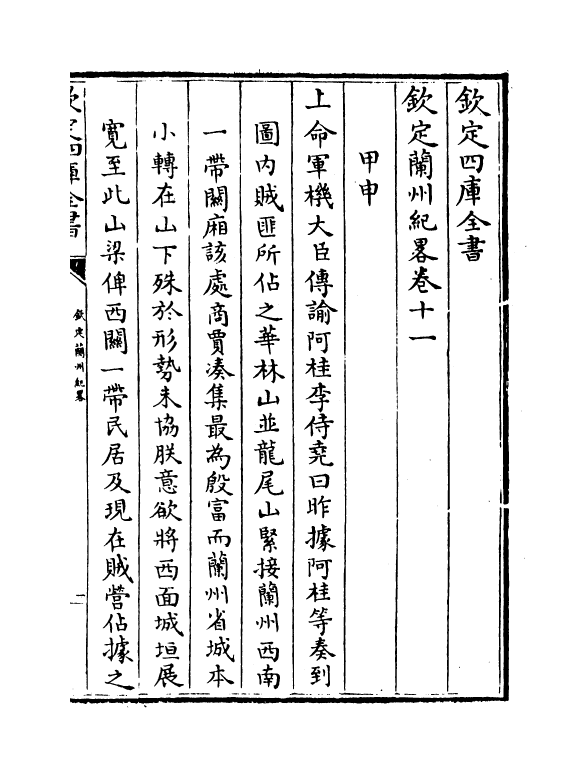 欽定四庫全書
欽定蘭州紀畧卷十一
甲申
上命軍機大臣傳諭阿桂李侍堯曰昨據阿桂等奏到
圖内賊匪所佔之華林山並龍尾山緊接蘭州西南
一帶關廂該處商賈湊集最為殷富而蘭州省城本
小轉在山下殊於形勢未協朕意欲將西面城垣展
寛至此山梁俾西關一帶民居及現在賊營佔據之
欽定四庫全書
欽定蘭州紀畧